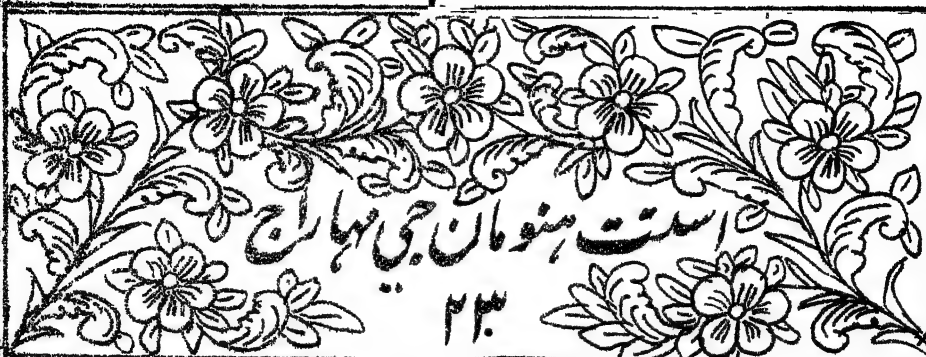 استت ہنومان جی مہاراج
۲۳